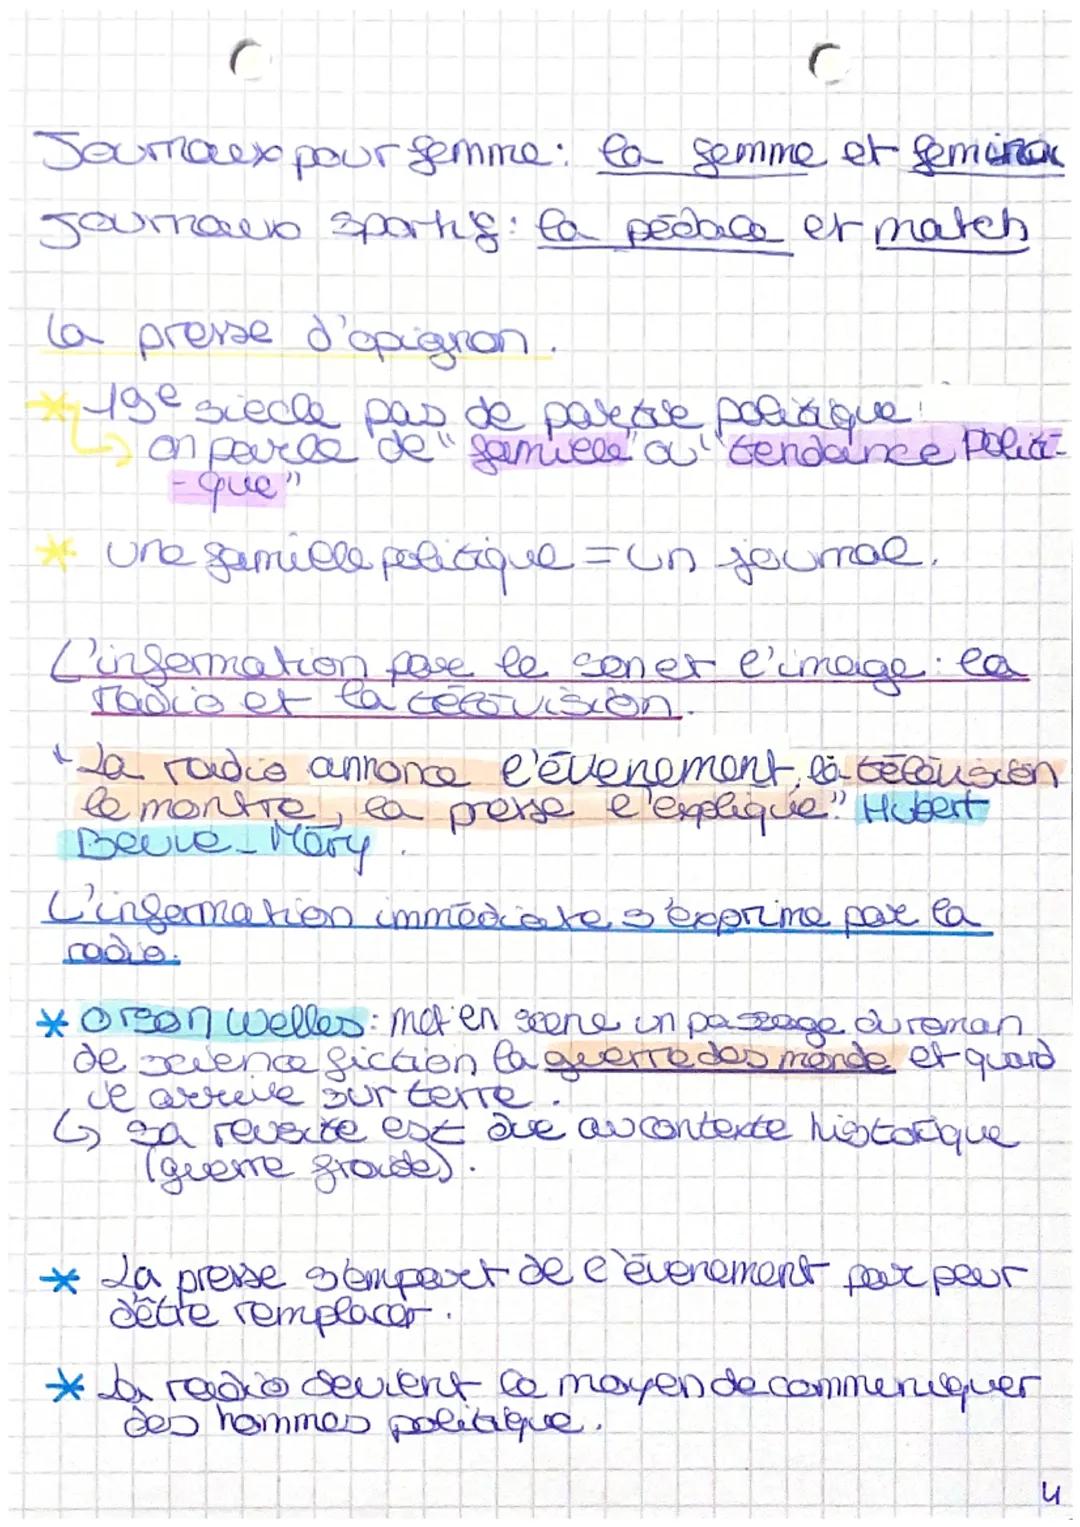 Journaux pour femme : la femme et femina
Journaux sportifs : la pédale et match
la presse d'opignon.
* 19e siècle pas de partie politique!
↳ on parle de "famille" ou "tendance politi-
-que"
* une famille politique = un journal.
L'information par le son et l'image : la
radio et la télévision.
"La radio annonce l'évenement, la télévision
le montre, la presse l'explique" Hubert
Beuve-Méry.
L'information immédiate s'exprime par la
radio.
* Orson Welles : met en scene un passage du roman
de science fiction la guerre des monde et quand
il arrive sur terre.
↳ sa reusite est due au contexte historique
(guerre froide).
* La presse s'empart de l'évenement par peur
dêtre remplacer.
* La radio devient le moyen de communiquer
des hommes politique.
4